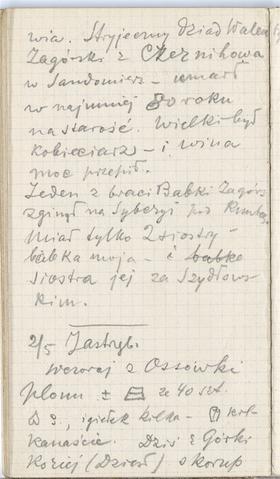 wia. Stryjeczny Dziad Walen
Zagórski z Czernihowa
w Sandomierz – umarł
w najmniej 80 roku
na starość. Wielki był
kobieciarz – i wina
moc przepił.
Jeden z braci Babki Zagórs
zginął na Syberyi pod
Miał tylko 2 siostry –
babka moja – i babke
siostra jej za Szydłows
kim.
2/5 Jastrzęb.
wczoraj z Ossówki
plonu ± ze 40 szt.
3., igiełek kilka –
kanaście. Dziś z Górki
Koziej (Dział) skorup